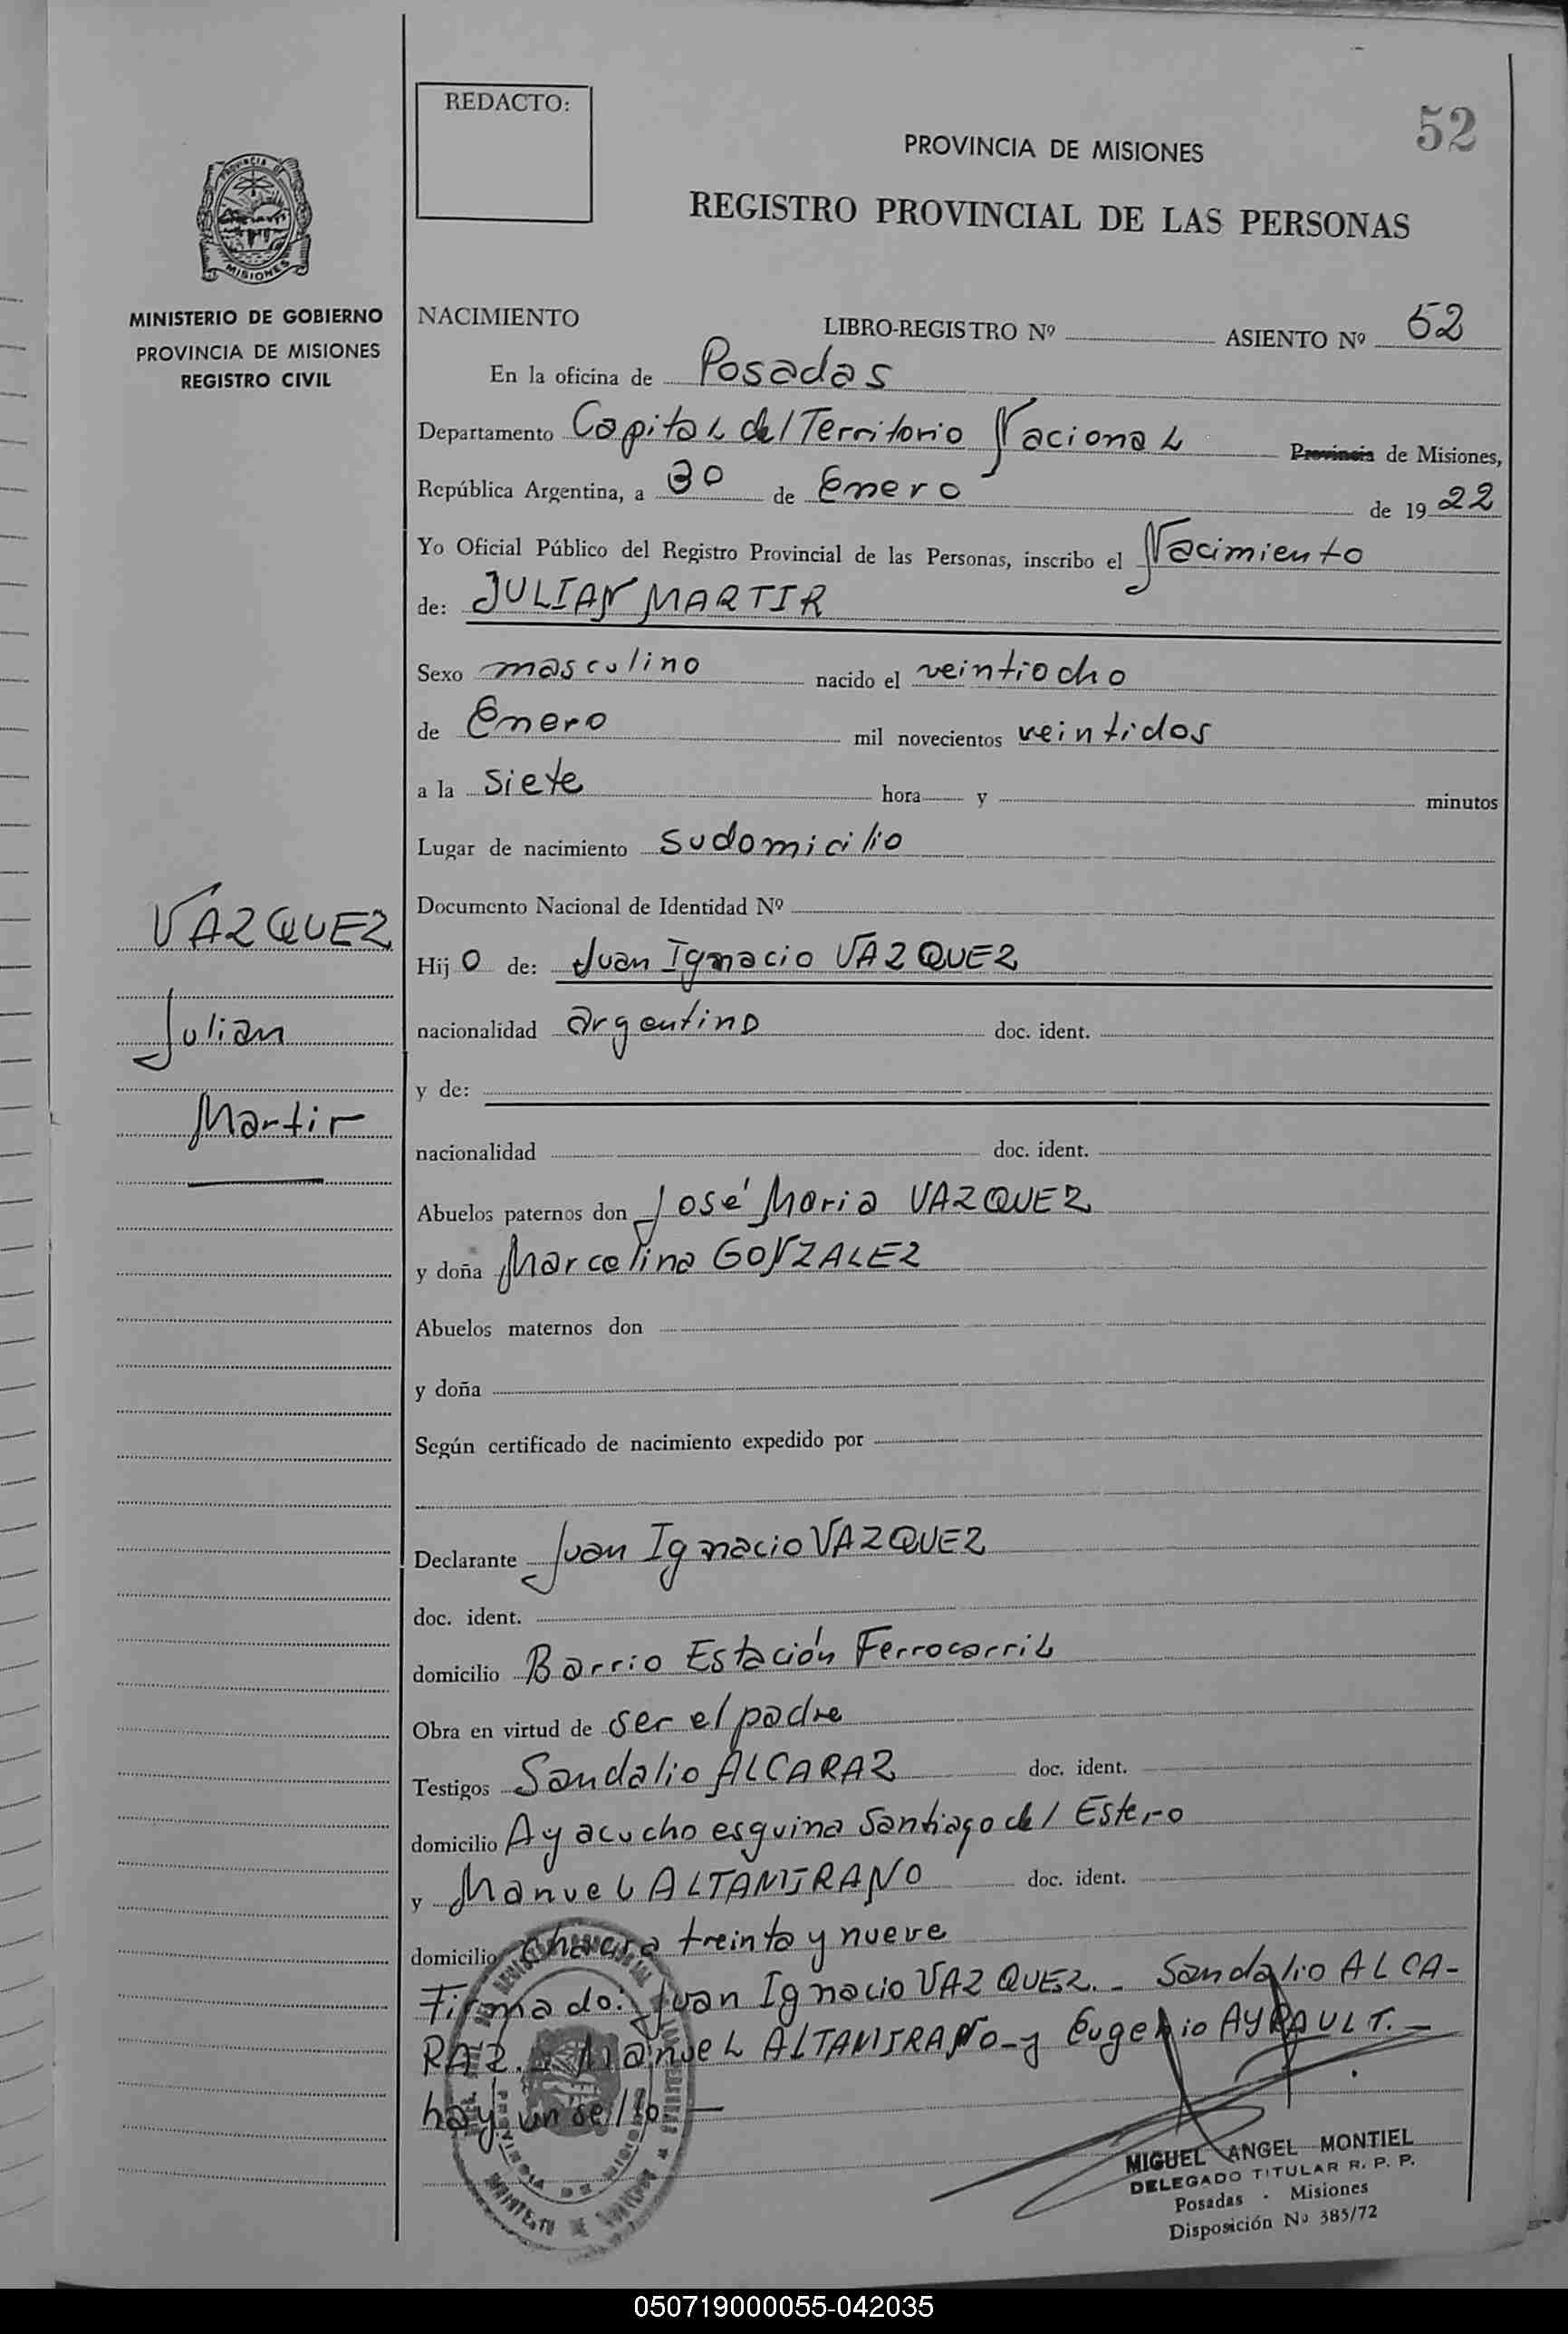 52
REDACTO:
PROVINCIA DE MISIONES
REGISTRO PROVINCIAL DE LAS PERSONAS
PROVINCIA DE
MISIONES
MINISTERIO DE GOBIERNO
PROVINCIA DE MISIONES
REGISTRO CIVIL
VAZQUEZ
Julian
Martir
NACIMIENTO LIBRO-REGISTRO Nº ASIENTO Nº 52
En la oficina de Posadas
Departamento Capital del Territorio Nacional Provincia de Misiones,
República Argentina, a 30 de Enero de 1922
Yo Oficial Público del Registro Provincial de las Personas, inscribo el Nacimiento
de: JULIAN MARTIR
Sexo masculino nacido el veintiocho
de Enero mil novecientos veintidos
a la siete hora y minutos
Lugar de nacimiento sudomicilio
Documento Nacional de Identidad Nº
Hij o de: Juan Ignacio VAZQUEZ
nacionalidad argentino doc. ident.
y de:
nacionalidad doc. ident.
Abuelos paternos don José Maria VAZQUEZ
y doña Marcelina GONZALEZ
Abuelos maternos don
y doña
Según certificado de nacimiento expedido por
Declarante Juan Ignacio VAZQUEZ
doc. ident.
domicilio Barrio Estación Ferrocarril
Obra en virtud de ser el padre
Testigos Sandalio ALCARAZ doc. ident.
domicilio Ayacucho esquina Santiago del Estero
y Manuel ALTAMIRANO doc. ident.
domicilio Chacra treinta y nueve
Firmado: Juan Ignacio VAZQUEZ.- Sandalio ALCA-
RAZ.- Manuel ALTAMIRANO-y Eugenio AYRAULT.-
hay un sello —
MIGUEL ANGEL MONTIEL
DELEGADO TITULAR R. P. P.
Posadas - Misiones
Disposición Nº 385/72
050719000055-042035